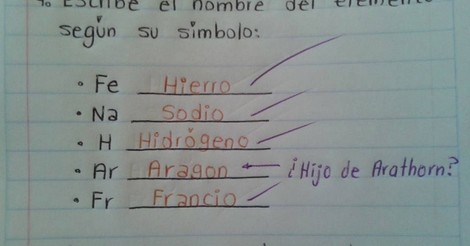 4. Escribe el nombre del elemento
según su símbolo:
• Fe Hierro
• Na Sodio
• H Hidrógeno
• Ar Aragon ← ¿Hijo de Arathorn?
• Fr Francio